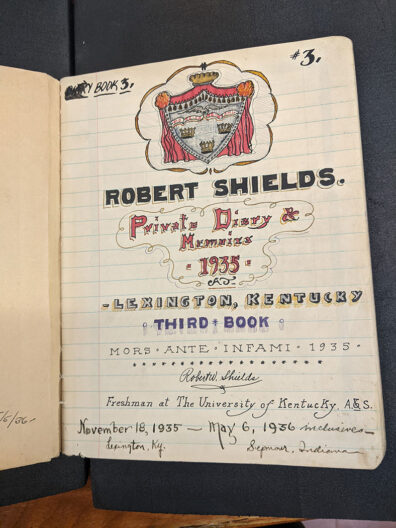 DIARY BOOK 3.
#3.
ROBERT SHIELDS.
Private Diary &
Memoirs
1935
-LEXINGTON, KENTUCKY
THIRD BOOK
MORS · ANTE · INFAMI · 1935 ·
Robert W. Shields
Freshman at The University of Kentucky, A.&S.
November 18, 1935 — May 6, 1936 inclusive—
Lexington, Ky. Seymour, Indiana
/6/36-